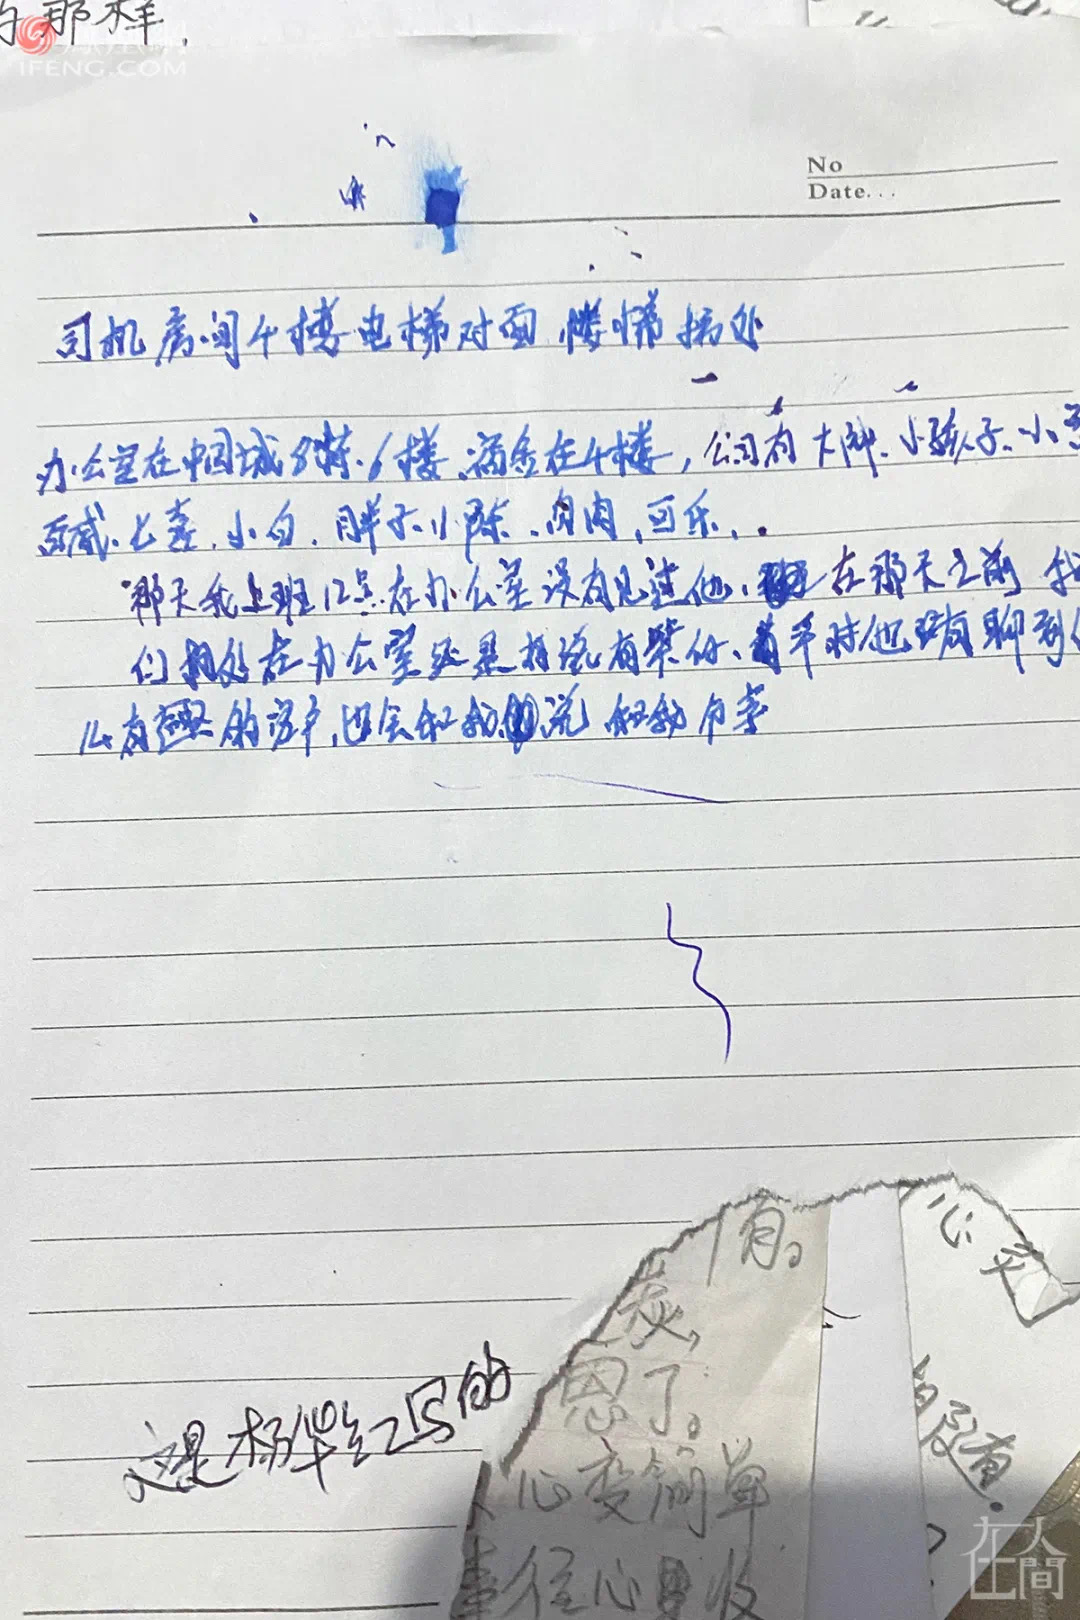 的那样.
IFENG.COM
No
Date...
司机房间4楼电梯对面,楼梯拐处
办公室在中国城8栋.6楼.在4楼,公司有大脚.小孩子.小
七喜.小白.胖子.小陈.肉肉,可乐,.
那天我上班12点在办公室没有见过他,在那天之前 我
们相处在办公室还是有说有笑的、平时他有聊到什
么有趣的客户,也会和我说 和我分享
这是杨华红写的
有。
炭,
思了。
人心变简单
往心里收
心灵
没有.
在人間